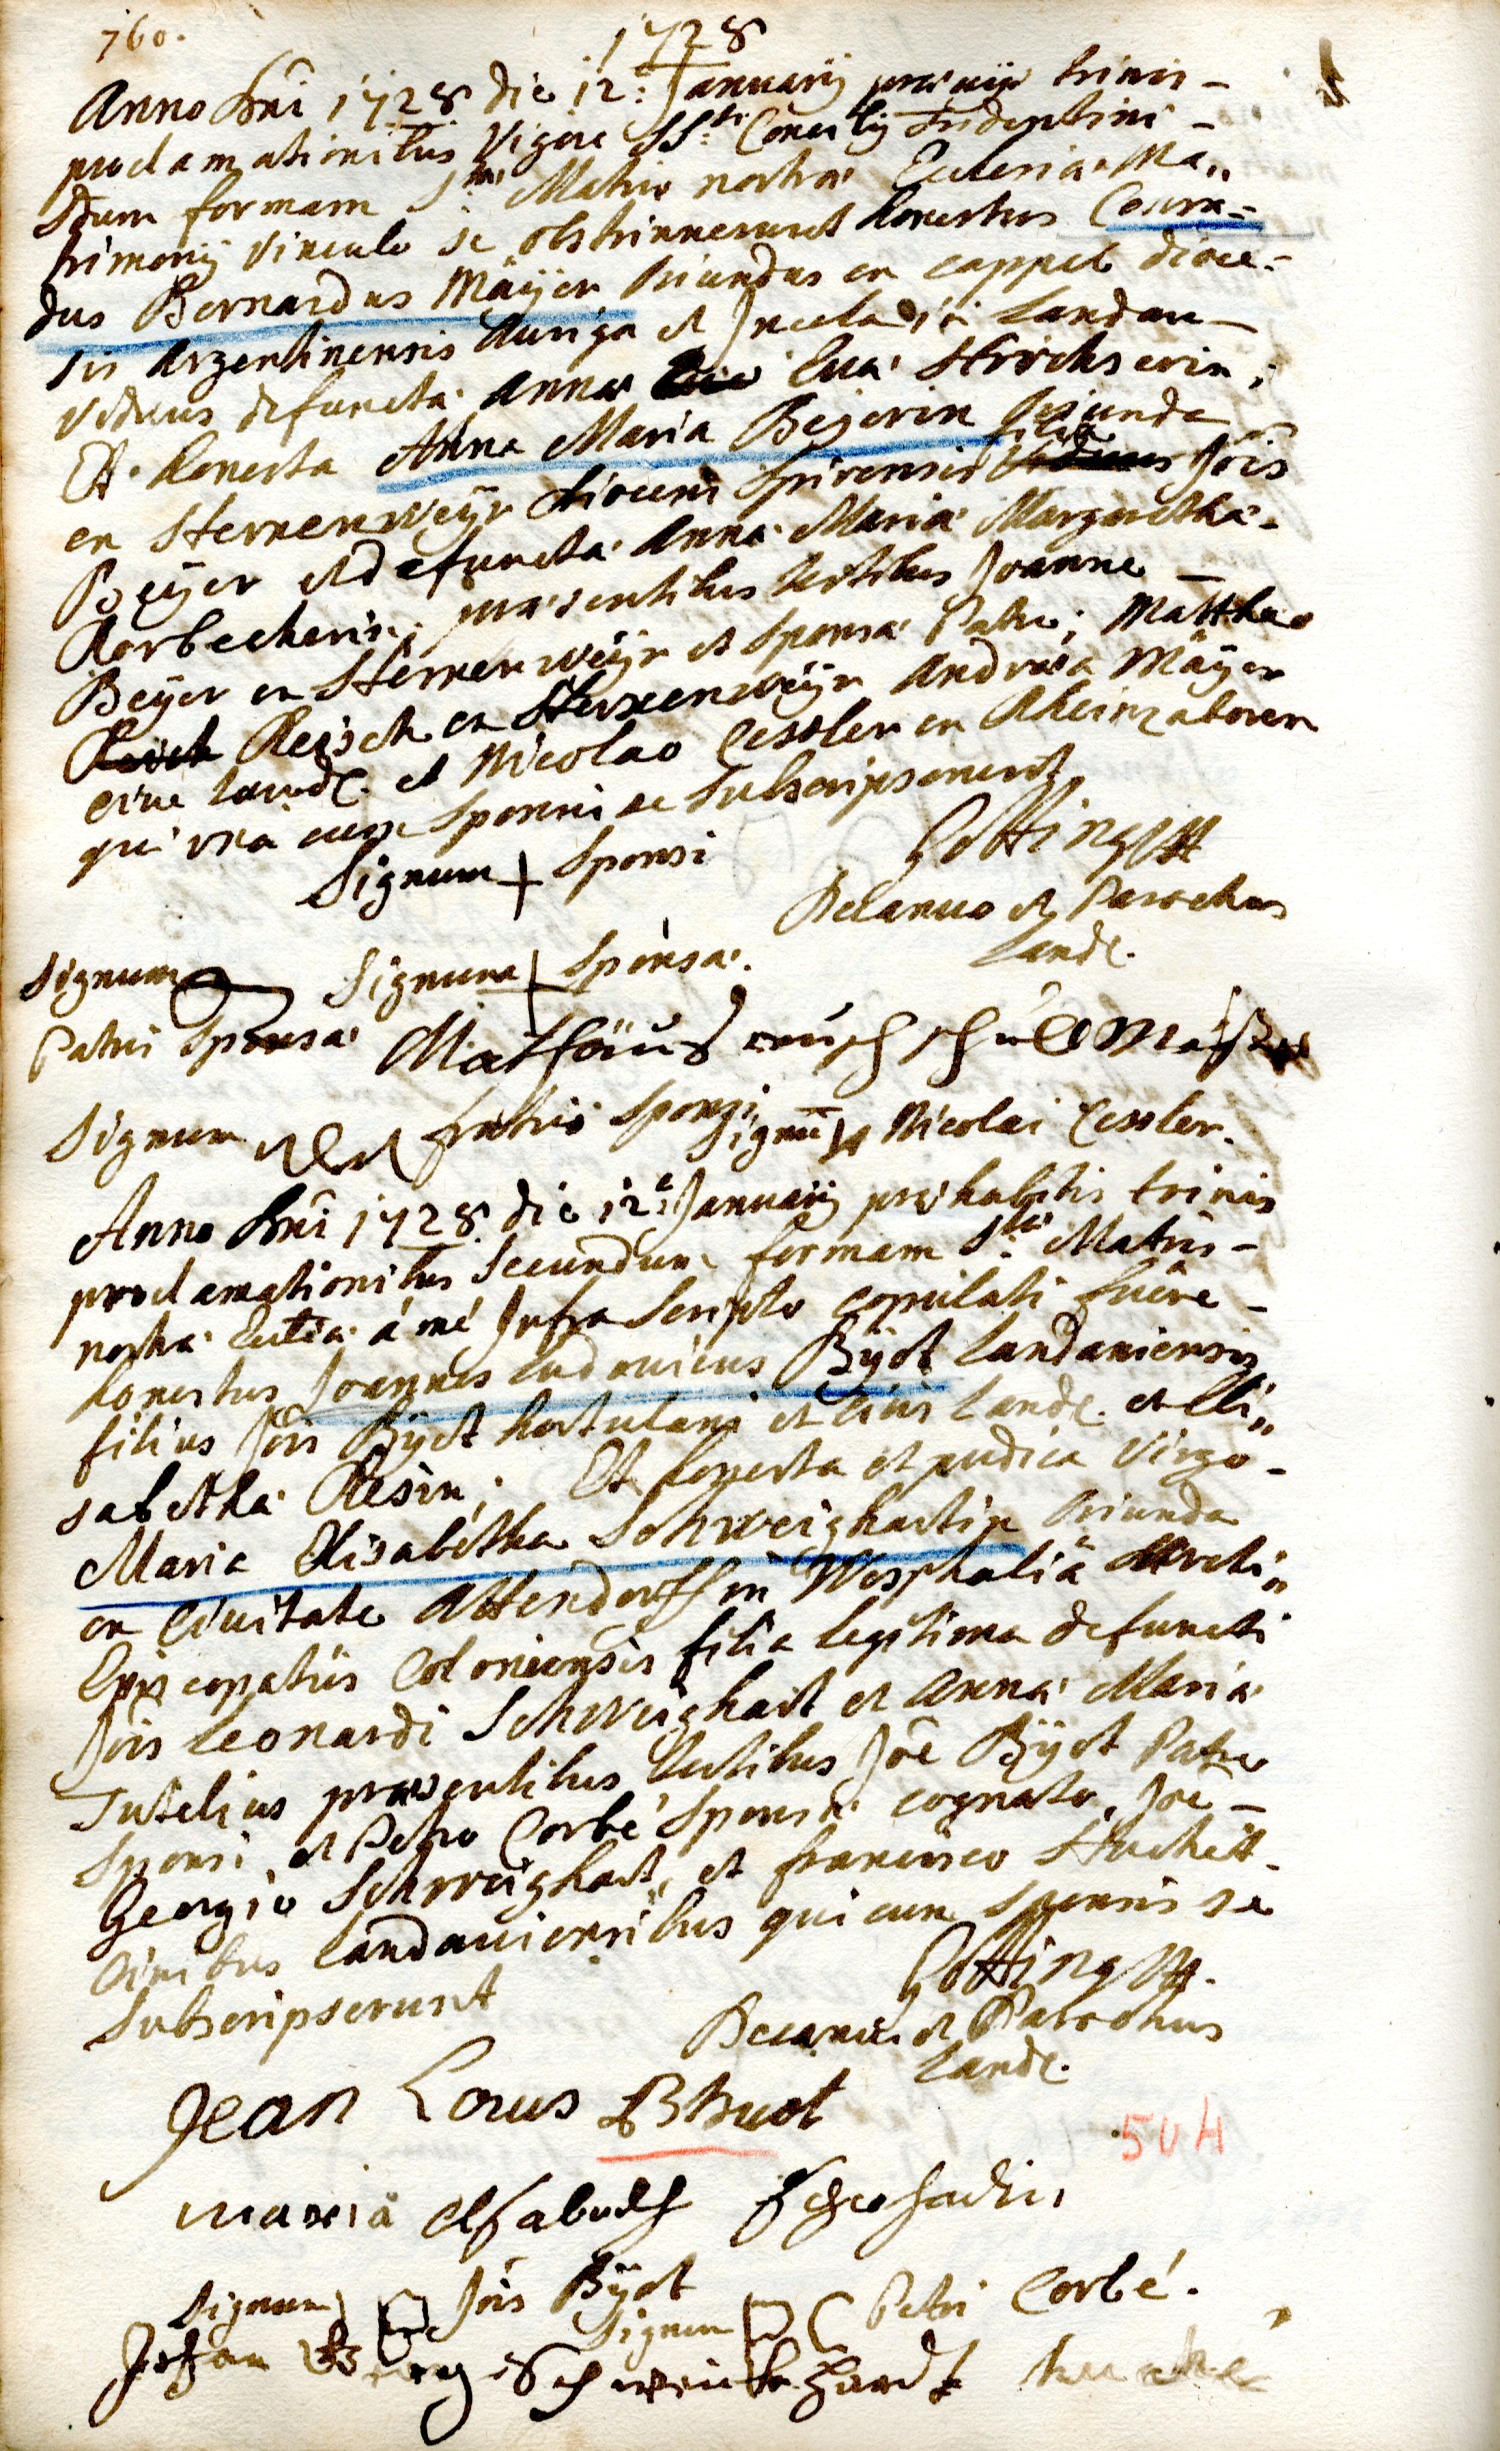 760.
1728
Anno Dni 1728 die 12: Januarij praeviis trinis -
proclamationibus Vigore SS:ti Concilij Tridentini -
Sdum formam S:tae Matris nostrae Ecclesiae Ma„
trimonij vinculo se obstrinxerunt honestus Conra=
dus Bernardus Mäÿer oriundus ex cappel dioce=
sis Argentinensis Auriga et Incola in Landau -
viduus defunctae Annae Evae Strichserin;
Et honesta Anna Maria Bejerin oriunda
ex Sternenweÿr diocesis Spirensis filia Jois
Beÿer et defunctae Annae Mariae Margarethae -
Korbecherin, praesentibus testibus Joanne -
Beÿer ex Sternenweÿr et Sponsae Patre; Matthaeo
Reisch ex Sternenweÿr Andrea Mäÿer
cive Landc. et Nicolao Cessler ex Rheinzaberen
qui una cum Sponsi se Subscripserunt
Signum + Sponsi
Gotting
Decanus et Parochus
Landc.
Signum Signum + Sponsae.
Patris Sponsae Matthäus reüsch schülmaister
Signum fratris Sponsi Signu Nicolai Cessler.
Anno Dni 1728 die 12: Januarij praehabitis trinis
proclamationibus Secundum formam S:tae Matris -
nostrae Ecclia à mé Infra Scripto copulati fuêre -
honestus Joannes Ludovicus Bÿot Landaviensis
filius Jois Bÿot hortulani et civis Landc. et Eli„
sabethae Resin; Et honesta et pudica virgo -
Maria Elisabetha Schweighartin oriunda
ex Civitate Attendorff in Wesphaliâ Archi„
Episcopatûs Coloniensis filia legitima defuncti
Jois Leonardi Schweighart et Annae Mariae
Tutelius praesentibus testibus Joê Bÿot Patre
Sponsi, et Petro Corbé Sponsae cognato, Joê -
Georgio Schweighart, et francisco Stuckelt -
Civibus Landaviensibus qui cum Sponsis se
Subscripserunt
Gotting
Decanus et Parochus
Landc.
Jean Louis
504
maria
Signum Jois Bÿot
Signum Petri Corbé.
Johan Georg Schweickhardt